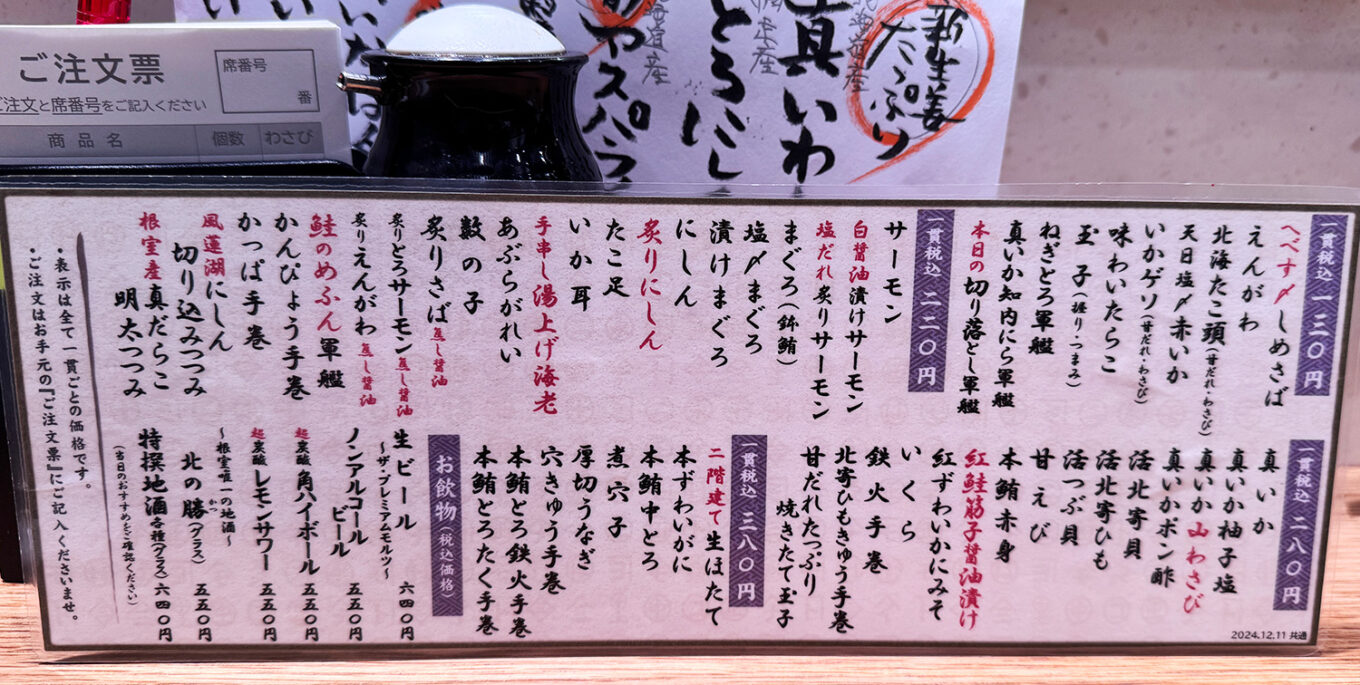 ご注文票
席番号
番
ご注文と席番号をご記入ください
商品名
個数
わさび
新生姜
たっぷり
真いわ
とろにし
一貫税込 一三〇円
へべす〆しめさば
えんがわ
北海たこ頭(甘だれ・わさび)
天日塩〆赤いか
いかゲソ(甘だれ・わさび)
味わいたらこ
玉子(握り・つまみ)
ねぎとろ軍艦
真いか知内にら軍艦
本日の切り落とし軍艦
一貫税込 二二〇円
サーモン
白醤油漬けサーモン
塩だれ炙りサーモン
まぐろ(鉢鮪)
塩〆まぐろ
漬けまぐろ
にしん
炙りにしん
たこ足
いか耳
手串し湯上げ海老
あぶらがれい
数の子
炙りさば 蒸し醤油
炙りとろサーモン 蒸し醤油
炙りえんがわ 蒸し醤油
鮭のめふん軍艦
かんぴょう手巻
かっぱ手巻
風蓮湖にしん
切り込みつつみ
根室産真だらこ
明太つつみ
一貫税込 二八〇円
真いか
真いか柚子塩
真いか山わさび
真いかポン酢
活北寄貝
活北寄ひも
活つぶ貝
甘えび
本鮪赤身
紅鮭筋子醤油漬け
紅ずわいかにみそ
いくら
鉄火手巻
北寄ひもきゅう手巻
甘だれたっぷり
焼きたて玉子
一貫税込 三八〇円
二階建て生ほたて
本ずわいがに
本鮪中とろ
煮穴子
厚切うなぎ
穴きゅう手巻
本鮪とろ鉄火手巻
本鮪とろたく手巻
お飲物 税込価格
生ビール 六四〇円
〜ザ・プレミアムモルツ〜
ノンアルコール
ビール 五五〇円
超炭酸角ハイボール 五五〇円
超炭酸レモンサワー 五五〇円
〜根室唯一の地酒〜
北の勝(グラス) 五五〇円
かつ
特撰地酒各種(グラス) 六四〇円
(当日のおすすめをご確認ください)
・表示は全て一貫ごとの価格です。
・ご注文はお手元の『ご注文票』にご記入くださいませ。
2024.12.11 共通